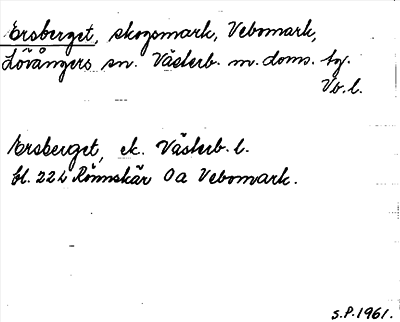 Ersberget, skogsmark, Vebomark,
Lövångers sn. Västerb. m. doms. tg.
Vb. l.
Ersberget, ek. Västerb. l.
bl. 22 L Rönnskär 0a Vebomark.
S.P. 1961.